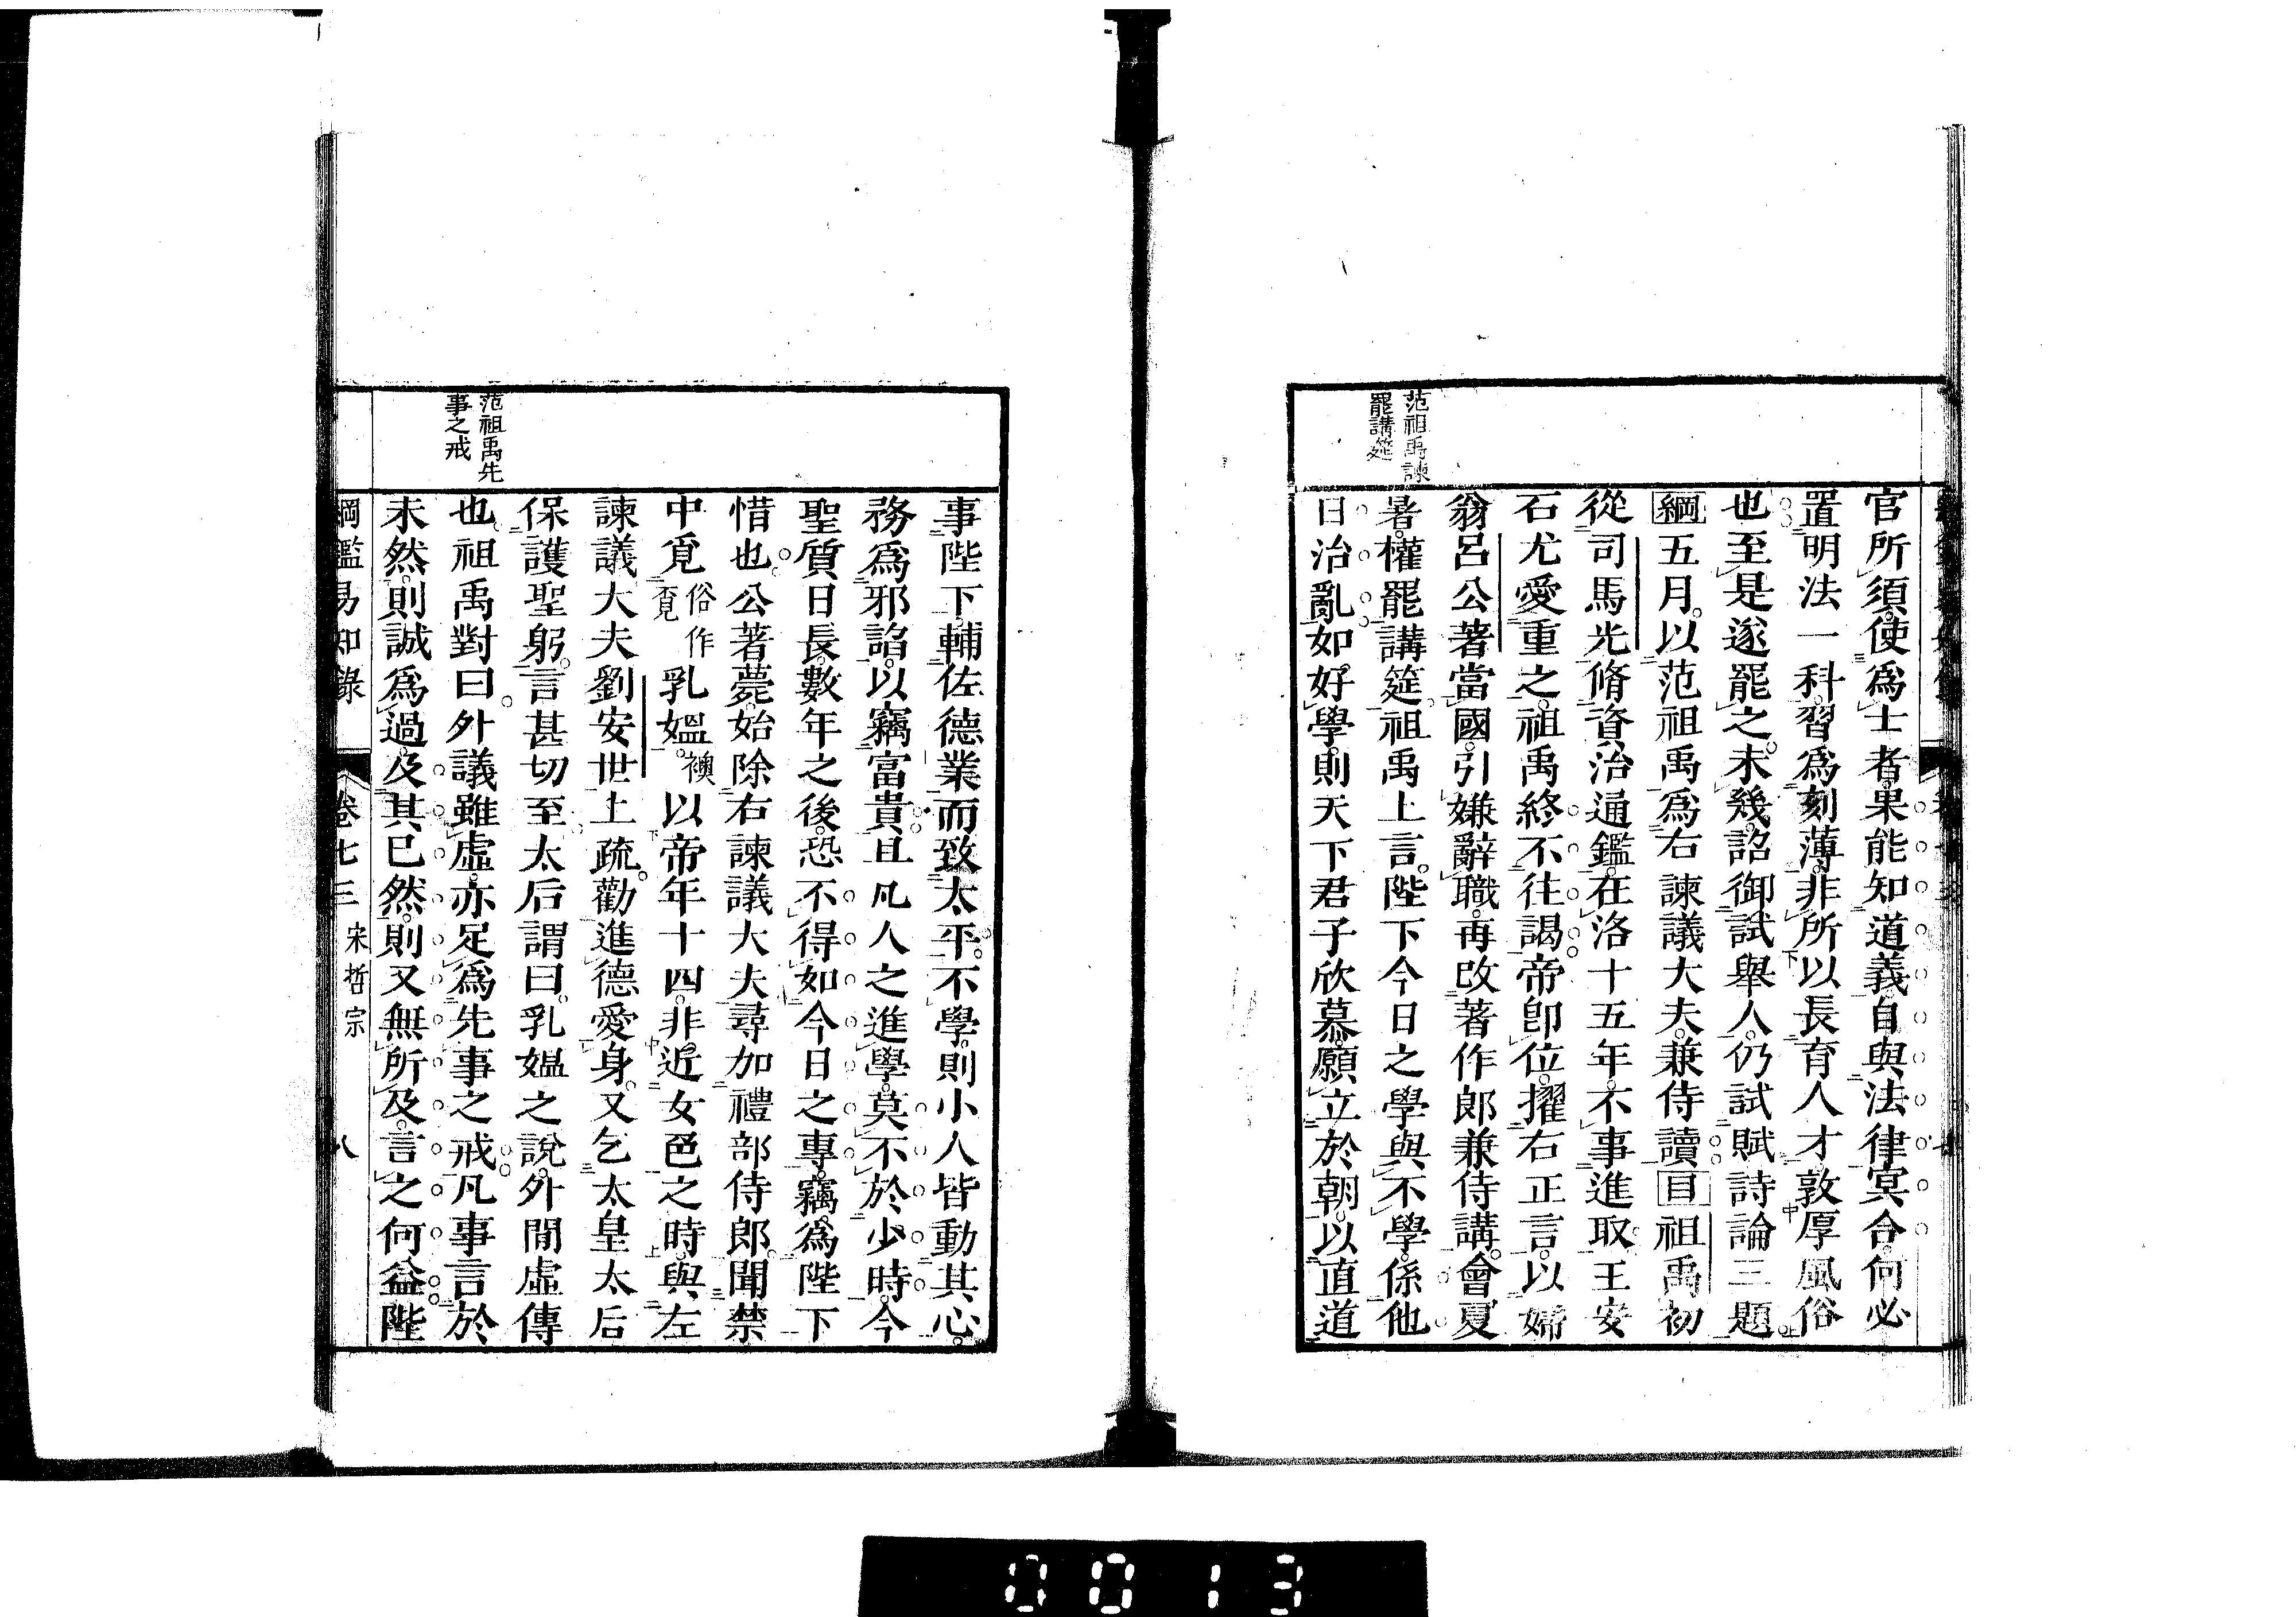 官所須使爲士者果能知道義自與法律冥合何必
置明法一科習爲刻薄非所以長育人才敦厚風俗
也至是遂罷之未幾詔御試舉人仍試賦詩論三題
綱五月以范祖禹爲右諫議大夫兼侍讀目祖禹初
從司馬光脩資治通鑑在洛十五年不事進取王安
石尤愛重之祖禹終不往謁帝卽位擢右正言以婦
翁呂公著當國引嫌辭職再改著作郎兼侍講會夏
暑權罷講筵祖禹上言陛下今日之學與不學係他
日治亂如好學則天下君子欣慕願立於朝以直道
范祖禹諫
罷講筵
事陛下輔佐德業而致太平不學則小人皆動其心
務爲邪諂以竊富貴且凡人之進學莫不於少時今
聖質日長數年之後恐不得如今日之專竊爲陛下
惜也公著薨始除右諫議大夫尋加禮部侍郎聞禁
中覓俗作覔乳媼襖以帝年十四非近女色之時與左
諫議大夫劉安世上疏勸進德愛身又乞太皇太后
保護聖躬言甚切至太后謂曰乳媼之說外閒虛傳
也祖禹對曰外議雖虛亦足爲先事之戒凡事言於
未然則誠爲過及其已然則又無所及言之何益陛
范祖禹先
事之戒
綱鑑易知錄 卷七三 宋哲宗 八
0013